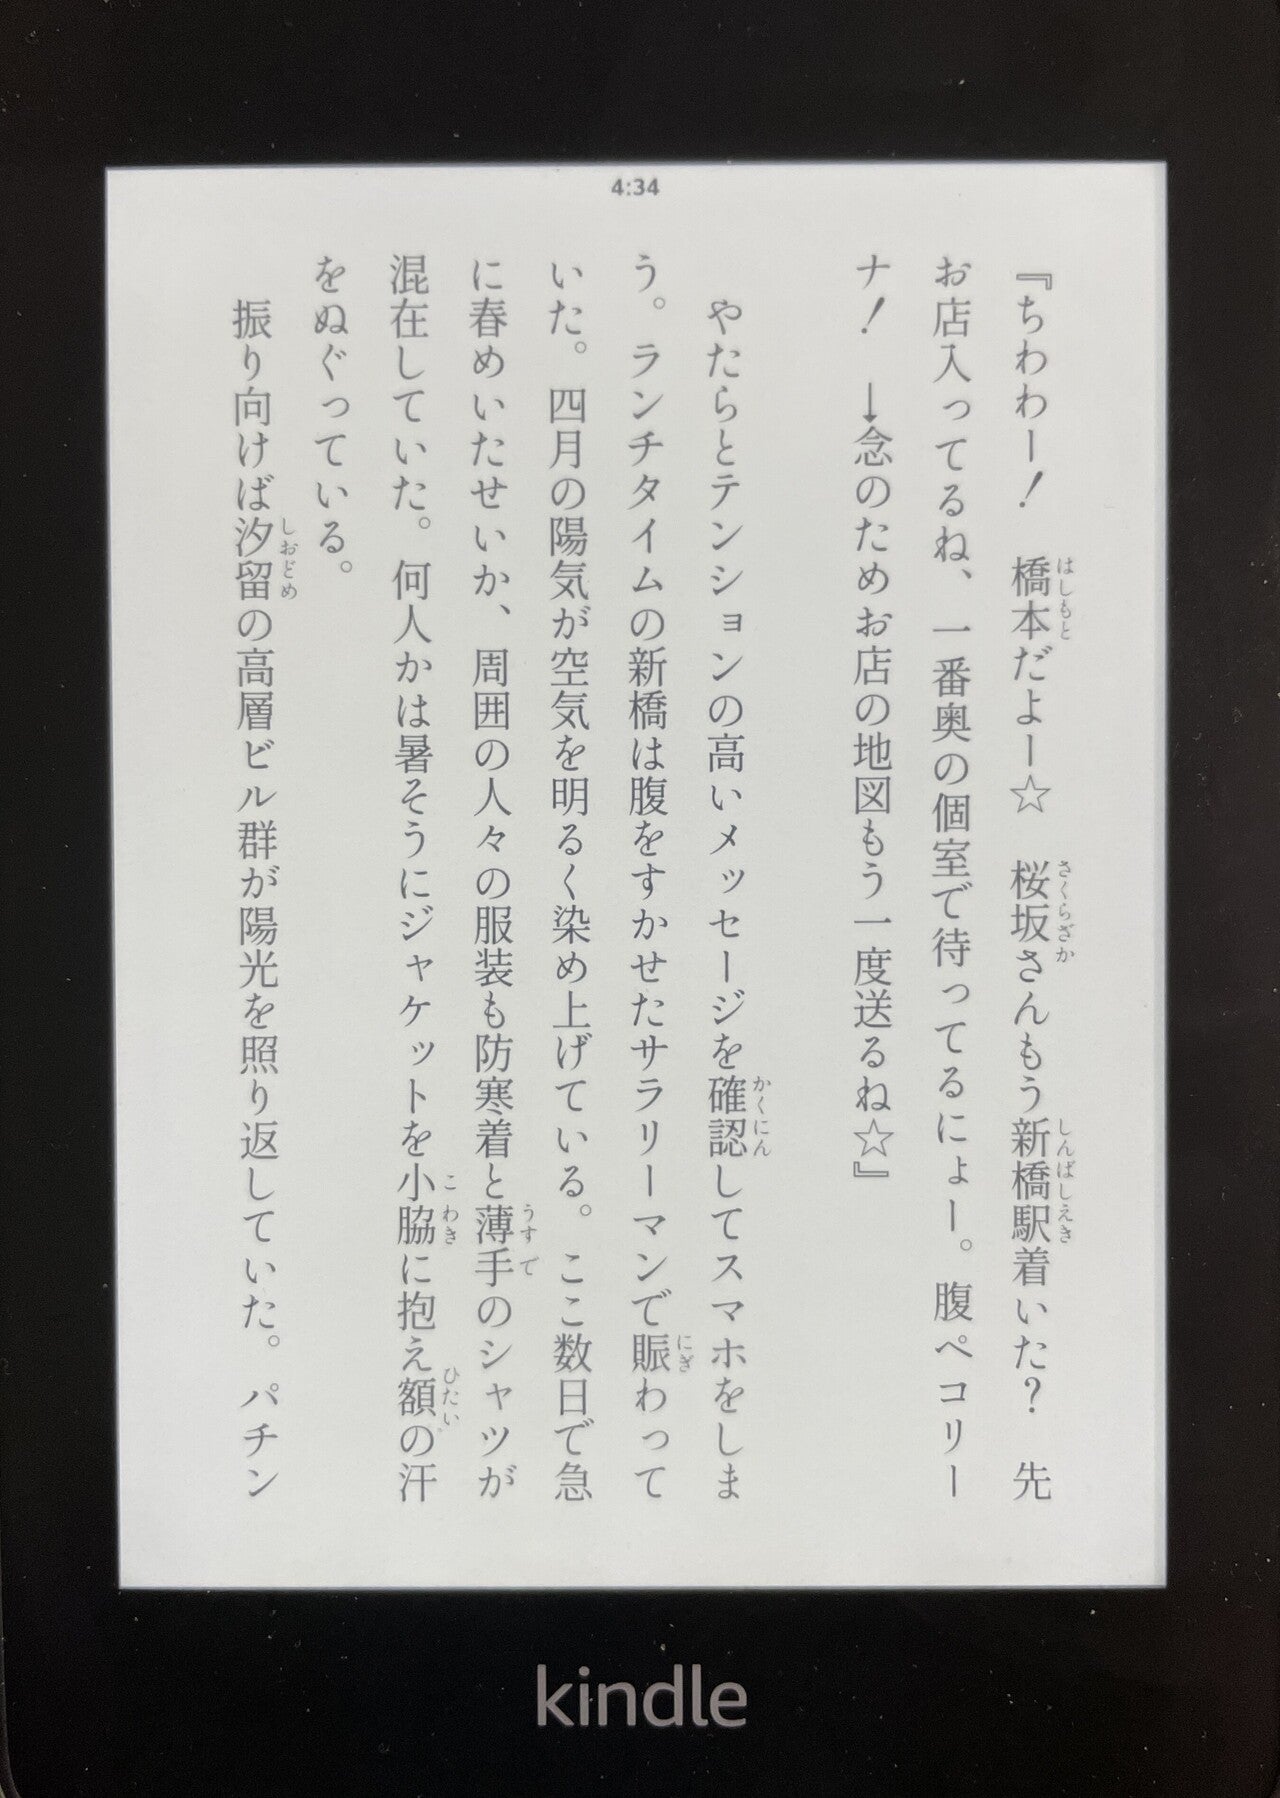 4:34
『ちわわー！　橋本だよー☆　桜坂さんもう新橋駅着いた？　先
お店入ってるね、一番奥の個室で待ってるにょー。腹ペコリー
ナ！　→念のためお店の地図もう一度送るね☆』
やたらとテンションの高いメッセージを確認してスマホをしま
う。ランチタイムの新橋は腹をすかせたサラリーマンで賑わって
いた。四月の陽気が空気を明るく染め上げている。ここ数日で急
に春めいたせいか、周囲の人々の服装も防寒着と薄手のシャツが
混在していた。何人かは暑そうにジャケットを小脇に抱え額の汗
をぬぐっている。
振り向けば汐留の高層ビル群が陽光を照り返していた。パチン
はしもと
さくらざか
しんばしえき
かくにん
にぎ
うすで
こわき
ひたい
しおどめ
kindle